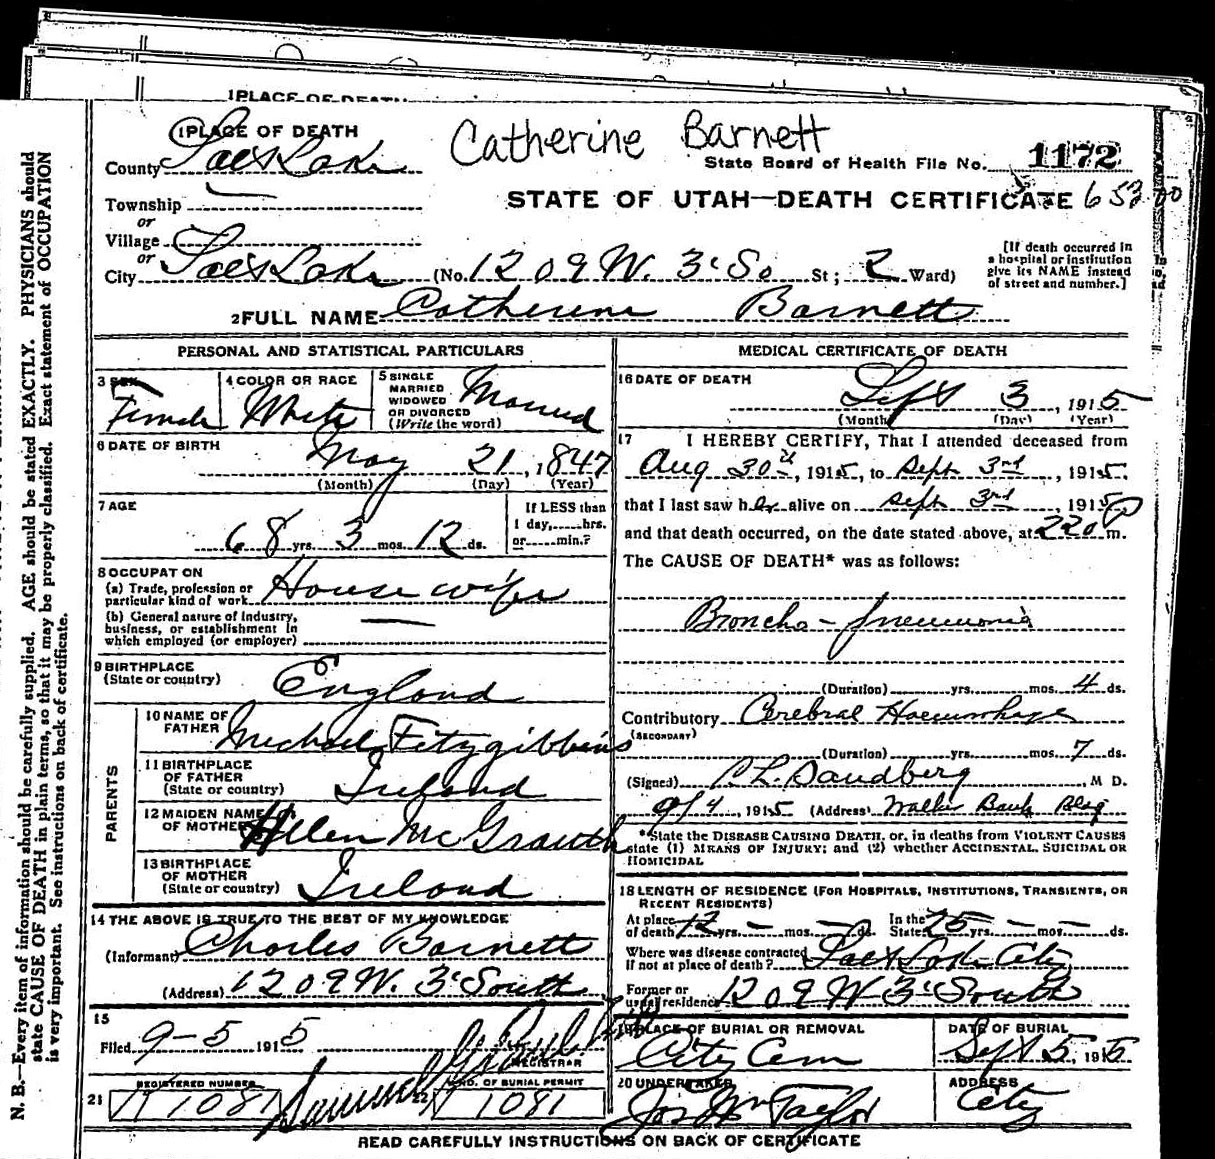 1PLACE OF DEATH
1PLACE OF DEATH
Catherine Barnett
County Salt Lake
State Board of Health File No. 1172
Township
STATE OF UTAH—DEATH CERTIFICATE
or
Village
or
City Salt Lake (No. 1209 W. 3' So St ; 2 Ward)
[If death occurred in
a hospital or institution
give its NAME instead
of street and number.]
2FULL NAME Catherine Barnett
PERSONAL AND STATISTICAL PARTICULARS
3 SEX
Female
4 COLOR OR RACE
White
5 SINGLE
MARRIED
WIDOWED
OR DIVORCED
(Write the word)
Married
6 DATE OF BIRTH
May 21, 1847
(Month) (Day) (Year)
7 AGE
68 yrs. 3 mos. 12 ds.
If LESS than
1 day,......hrs.
or......min.?
8 OCCUPATION
(a) Trade, profession or
particular kind of work House wife
(b) General nature of industry,
business, or establishment in
which employed (or employer)
9 BIRTHPLACE
(State or country) England
PARENTS
10 NAME OF
FATHER Michael Fitzgibbins
11 BIRTHPLACE
OF FATHER
(State or country) Ireland
12 MAIDEN NAME
OF MOTHER Hellen McGrauth
13 BIRTHPLACE
OF MOTHER
(State or country) Ireland
14 THE ABOVE IS TRUE TO THE BEST OF MY KNOWLEDGE
(Informant) Charles Barnett
(Address) 1209 W. 3' South
15
Filed 9-5 1915
REGISTRAR
REGISTERED NUMBER
NO. OF BURIAL PERMIT
21 1081
1081
MEDICAL CERTIFICATE OF DEATH
16 DATE OF DEATH
Sept 3, 1915
(Month) (Day) (Year)
17 I HEREBY CERTIFY, That I attended deceased from
Aug 30th, 1915, to Sept 3rd, 1915,
that I last saw her alive on Sept 3rd, 1915,
and that death occurred, on the date stated above, at 220 P m.
The CAUSE OF DEATH* was as follows:
Broncho-pneumonia
(Duration) yrs. mos. 4 ds.
Contributory Cerebral Haemorrhage
(SECONDARY)
(Duration) yrs. mos. 7 ds.
(Signed) Sandberg M D.
4, 1915 (Address) Walker Bank Bldg
*State the DISEASE CAUSING DEATH, or, in deaths from VIOLENT CAUSES
state (1) MEANS OF INJURY; and (2) whether ACCIDENTAL, SUICIDAL OR
HOMICIDAL
18 LENGTH OF RESIDENCE (FOR HOSPITALS, INSTITUTIONS, TRANSIENTS, OR
RECENT RESIDENTS)
At place
of death 12 yrs. — mos. — ds.
In the
State 25 yrs. — mos. — ds.
Where was disease contracted
If not at place of death? Salt Lake City
Former or
usual residence 1209 W 3' South
19 PLACE OF BURIAL OR REMOVAL
City Cem
DATE OF BURIAL
Sept 5, 1915
20 UNDERTAKER
Jos Wm Taylor
ADDRESS
City
READ CAREFULLY INSTRUCTIONS ON BACK OF CERTIFICATE
N. B.—Every item of information should be carefully supplied. AGE should be stated EXACTLY. PHYSICIANS should
state CAUSE OF DEATH in plain terms, so that it may be properly classified. Exact statement of OCCUPATION
is very important. See instructions on back of certificate.